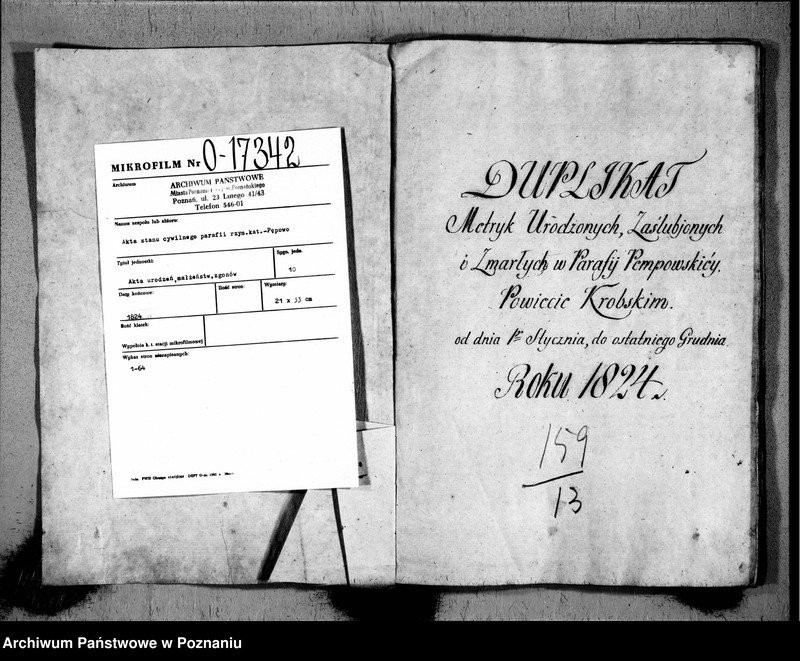 MIKROFILM Nr O-17342
Archiwum
ARCHIWUM PAŃSTWOWE
Miasta Poznania i Poznańskiego
Poznań, ul. 23 Lutego 41/43
Telefon 546-01
Nazwa zespołu lub zbioru:
Akta stanu cywilnego parafii rzym.kat.-Pępowo
Tytuł jednostki:
Akta urodzeń,małżeństw,zgonów
Sygn. jedn.
10
Daty końcowe:
1824
Ilość stron:
Wymiary:
21 x 33 cm
Ilość klatek:
Wypełnia k. t. stacji mikrofilmowej
Wykaz stron niezapisanych:
1-64
DUPLIKAT
Metryk Urodzonych, Zaślubjonych
i Zmarłych w Parafij Pempowskićy.
Powiecie Krobskim.
od dnia 1go Stycznia, do ostatniego Grudnia
Roku 1824.
159
13
Archiwum Państwowe w Poznaniu